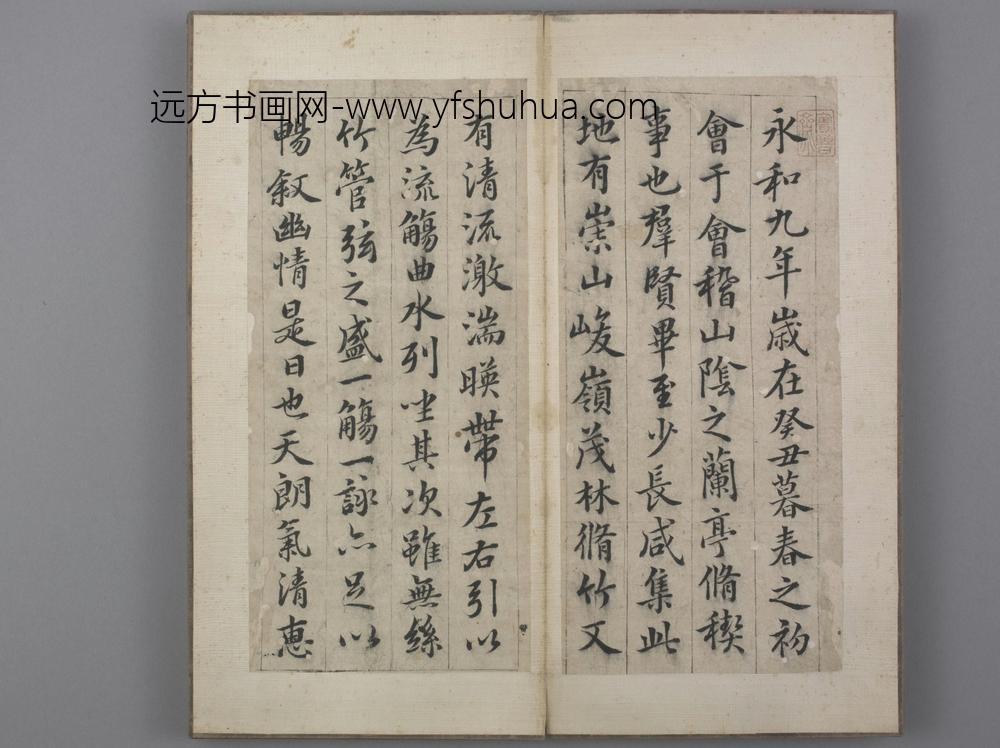 远方书画网-www.yfshuhua.com
永和九年歲在癸丑暮春之初
會于會稽山陰之蘭亭脩稧
事也羣賢畢至少長咸集此
地有崇山峻嶺茂林脩竹又
有清流激湍暎帶左右引以
為流觴曲水列坐其次雖無絲
竹管弦之盛一觴一詠亦足以
暢敘幽情是日也天朗氣清惠